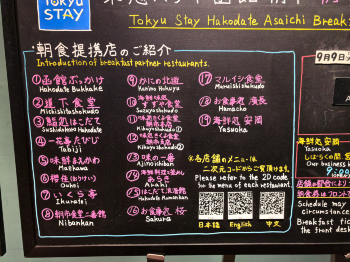 TOKYU
STAY
Tokyu Stay Hakodate Asaichi Break
朝食提携店のご紹介
Introduction of breakfast partner restaurants.
①函館ぶっかけ
Hakodate Bukkake
②道下食堂
Michishita Shokudo
③鮨処はこだて
Sushidokoro Hakodate
④一花亭たびじ
Tabiji
⑤味鮮まえかわ
Maekawa
⑥
Oukei
⑦いくら亭
Ikuratei
⑧朝市食堂二番館
Nibankan
⑨かにの北直
⑩海鮮味処
きくよ食堂
Kikuyo Shokudo①
Kikuyo Shokudo②
⑬味の一番
Ajinoichiban
⑭海鮮料理と釜めし
あらき
Araki
⑮はこだて浪漫館
Hakodate Romankan
⑯お食事処 桜
Sakura
⑰マルイシ食堂
Maruishi Shokudo
⑱お食事処 濱長
Hamacho
⑲海鮮処 安岡
Yasuoka
※各店舗のメニューは
二次元コードからご覧頂けます。
Please refer to the 2D code
for the menu of each restaurant.
日本語 English 中文
9月9日
海鮮処 安岡
Yasuoka
Our business
Schedule may
circumstance
Breakfast tic
the front desk